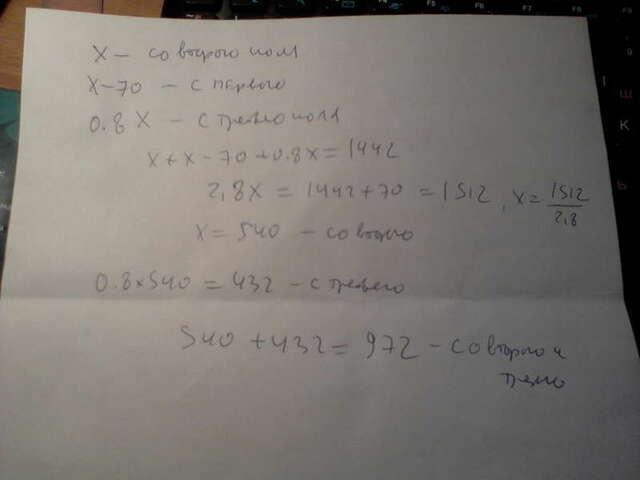 x – со второго поля
x–70 – с первого
0.8x – с третьего поля
x+x–70+0.8x=1442
2,8x = 1442+70 = 1512, x = 1512/2,8
x = 540 – со второго
0.8×540 = 432 – с третьего
540+432 = 972 – со второго и
третьего